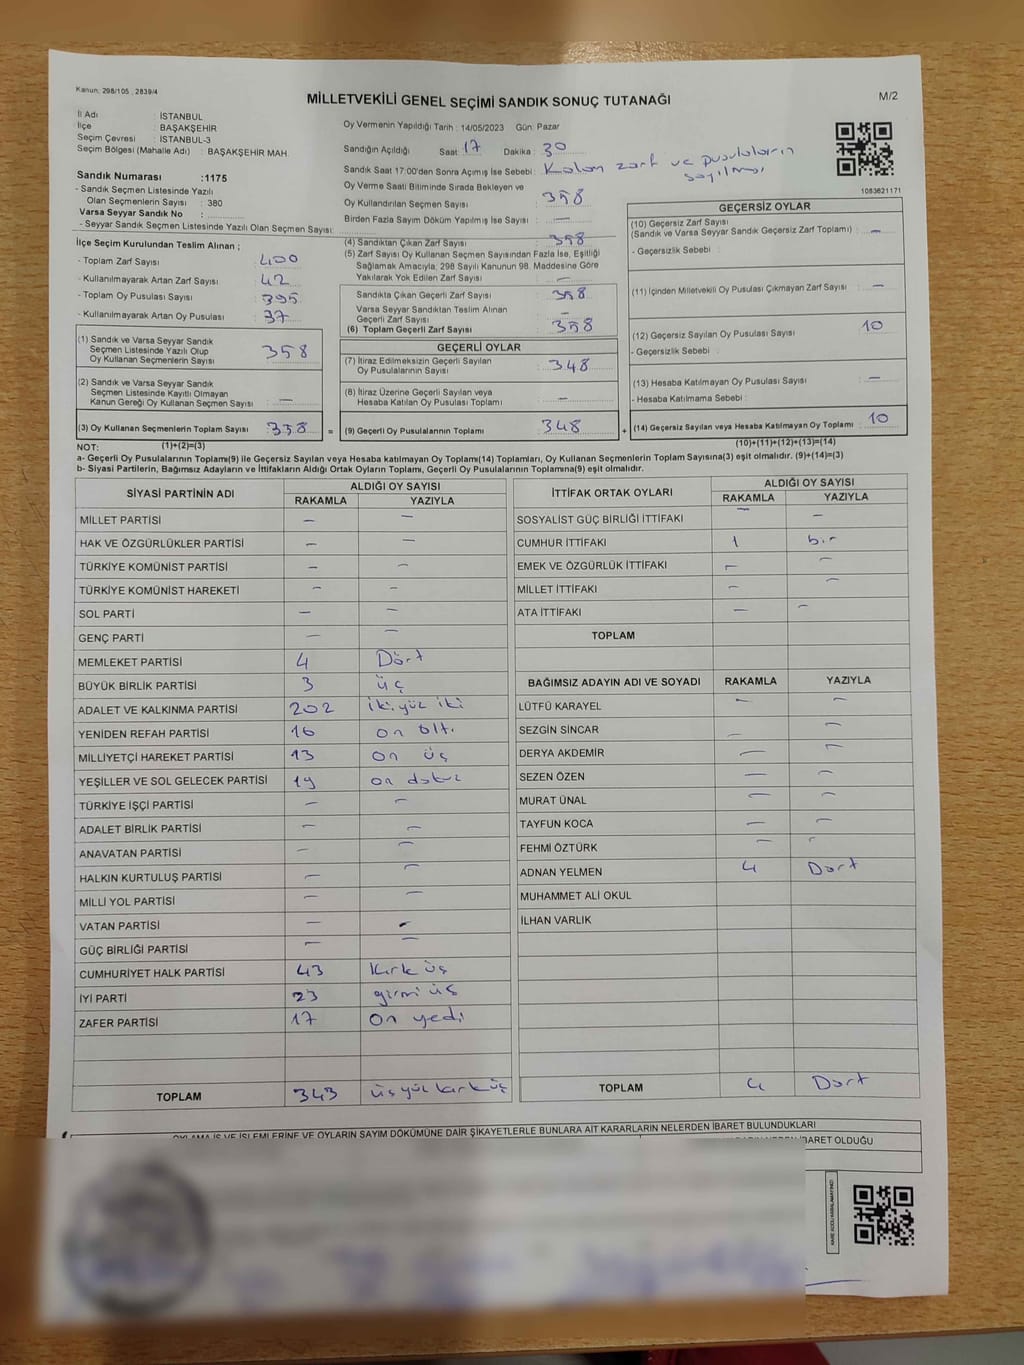 Kanun, 298/105 , 2839/4
MİLLETVEKİLİ GENEL SEÇİMİ SANDIK SONUÇ TUTANAĞI
M/2
İl Adı : İSTANBUL
İlçe : BAŞAKŞEHİR
Seçim Çevresi : İSTANBUL-3
Seçim Bölgesi (Mahalle Adı) : BAŞAKŞEHİR MAH.
Sandık Numarası :1175
- Sandık Seçmen Listesinde Yazılı
Olan Seçmenlerin Sayısı : 380
Varsa Seyyar Sandık No :
- Seyyar Sandık Seçmen Listesinde Yazılı Olan Seçmen Sayısı:
Oy Vermenin Yapıldığı Tarih : 14/05/2023 Gün: Pazar
Sandığın Açıldığı Saat: 17 Dakika : 30
Sandık Saat 17:00'den Sonra Açımış İse Sebebi : Kalan zarf ve pusulaların
sayılması
Oy Verme Saati Bitiminde Sırada Bekleyen ve
Oy Kullandırılan Seçmen Sayısı : 358
Birden Fazla Sayım Döküm Yapılmış İse Sayısı : —
1083621171
İlçe Seçim Kurulundan Teslim Alınan ;
- Toplam Zarf Sayısı : 400
- Kullanılmayarak Artan Zarf Sayısı : 42
- Toplam Oy Pusulası Sayısı : 395
- Kullanılmayarak Artan Oy Pusulası : 37
(1) Sandık ve Varsa Seyyar Sandık
Seçmen Listesinde Yazılı Olup
Oy Kullanan Seçmenlerin Sayısı : 358
(2) Sandık ve Varsa Seyyar Sandık
Seçmen Listesinde Kayıtlı Olmayan
Kanun Gereği Oy Kullanan Seçmen Sayısı : —
(3) Oy Kullanan Seçmenlerin Toplam Sayısı : 358
(4) Sandıktan Çıkan Zarf Sayısı : 358
(5) Zarf Sayısı Oy Kullanan Seçmen Sayısından Fazla İse, Eşitliği
Sağlamak Amacıyla, 298 Sayılı Kanunun 98. Maddesine Göre
Yakılarak Yok Edilen Zarf Sayısı : —
Sandıkta Çıkan Geçerli Zarf Sayısı : 358
Varsa Seyyar Sandıktan Teslim Alınan
Geçerli Zarf Sayısı : —
(6) Toplam Geçerli Zarf Sayısı : 358
GEÇERLİ OYLAR
(7) İtiraz Edilmeksizin Geçerli Sayılan
Oy Pusulalarının Sayısı : 348
(8) İtiraz Üzerine Geçerli Sayılan veya
Hesaba Katılan Oy Pusulası Toplamı : —
= (9) Geçerli Oy Pusulalarının Toplamı : 348 +
GEÇERSİZ OYLAR
(10) Geçersiz Zarf Sayısı
(Sandık ve Varsa Seyyar Sandık Geçersiz Zarf Toplamı) : —
- Geçersizlik Sebebi :
(11) İçinden Milletvekili Oy Pusulası Çıkmayan Zarf Sayısı : —
(12) Geçersiz Sayılan Oy Pusulası Sayısı : 10
- Geçersizlik Sebebi :
(13) Hesaba Katılmayan Oy Pusulası Sayısı : —
- Hesaba Katılmama Sebebi :
(14) Geçersiz Sayılan veya Hesaba Katılmayan Oy Toplamı : 10
NOT: (1)+(2)=(3) (10)+(11)+(12)+(13)=(14)
a- Geçerli Oy Pusulalarının Toplamı(9) ile Geçersiz Sayılan veya Hesaba Katılmayan Oy Toplamı(14) Toplamları, Oy Kullanan Seçmenlerin Toplam Sayısına(3) eşit olmalıdır. (9)+(14)=(3)
b- Siyasi Partilerin, Bağımsız Adayların ve İttifakların Aldığı Ortak Oyların Toplamı, Geçerli Oy Pusulalarının Toplamına(9) eşit olmalıdır.
SİYASİ PARTİNİN ADI ALDIĞI OY SAYISI
RAKAMLA YAZIYLA
MİLLET PARTİSİ — —
HAK VE ÖZGÜRLÜKLER PARTİSİ — —
TÜRKİYE KOMÜNİST PARTİSİ — —
TÜRKİYE KOMÜNİST HAREKETİ — —
SOL PARTİ — —
GENÇ PARTİ — —
MEMLEKET PARTİSİ 4 Dört
BÜYÜK BİRLİK PARTİSİ 3 üç
ADALET VE KALKINMA PARTİSİ 202 iki yüz iki
YENİDEN REFAH PARTİSİ 16 on altı
MİLLİYETÇİ HAREKET PARTİSİ 13 on üç
YEŞİLLER VE SOL GELECEK PARTİSİ 19 on dokuz
TÜRKİYE İŞÇİ PARTİSİ — —
ADALET BİRLİK PARTİSİ — —
ANAVATAN PARTİSİ — —
HALKIN KURTULUŞ PARTİSİ — —
MİLLİ YOL PARTİSİ — —
VATAN PARTİSİ — —
GÜÇ BİRLİĞİ PARTİSİ — —
CUMHURİYET HALK PARTİSİ 43 Kırk üç
İYİ PARTİ 23 yirmi üç
ZAFER PARTİSİ 17 On yedi
TOPLAM 343 üç yüz kırk üç
İTTİFAK ORTAK OYLARI ALDIĞI OY SAYISI
RAKAMLA YAZIYLA
SOSYALİST GÜÇ BİRLİĞİ İTTİFAKI — —
CUMHUR İTTİFAKI 1 bir
EMEK VE ÖZGÜRLÜK İTTİFAKI — —
MİLLET İTTİFAKI — —
ATA İTTİFAKI — —
TOPLAM
BAĞIMSIZ ADAYIN ADI VE SOYADI RAKAMLA YAZIYLA
LÜTFÜ KARAYEL — —
SEZGİN SİNCAR — —
DERYA AKDEMİR — —
SEZEN ÖZEN — —
MURAT ÜNAL — —
TAYFUN KOCA — —
FEHMİ ÖZTÜRK — —
ADNAN YELMEN 4 Dört
MUHAMMET ALİ OKUL
İLHAN VARLIK
TOPLAM 4 Dört
OYLAMA İŞ VE İŞLEMLERİNE VE OYLARIN SAYIM DÖKÜMÜNE DAİR ŞİKAYETLERLE BUNLARA AİT KARARLARIN NELERDEN İBARET BULUNDUKLARI
NEDEN İBARET OLDUĞU